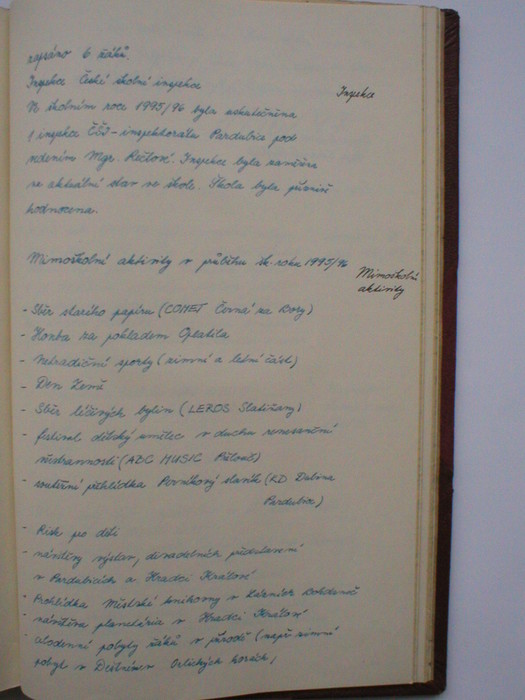 zapsáno 6 žáků.
Inspekce České školní inspekce
Inspekce
Ve školním roce 1995/96 byla uskutečněna
1 inspekce ČŠI - inspektorátu Pardubice pod
vedením Mgr. Inspekce byla zaměřena
na aktuální stav ve škole. Škola byla příznivě
hodnocena.
Mimoškolní aktivity v průběhu šk. roku 1995/96
Mimoškolní
aktivity
- Sběr starého papíru (COMET Černá za Bory)
- Honba za pokladem Opatila
- Netradiční sporty (zimní a letní část)
- Den Země
- Sběr léčivých bylin (LEROS Slatiňany)
- festival dětský umělec v duchu renesanční
všestrannosti (ABC MUSIC Přelouč)
- soutěžní přehlídka Perníkový slavík (KD Dubina
Pardubice)
- Risk pro děti
- návštěvy výstav, divadelních představení
v Pardubicích a Hradci Králové
- Prohlídka Městské knihovny v Lázních Bohdaneč
- návštěva planetária v Hradci Králové
- celodenní pobyty žáků v přírodě (např. zimní
pobyt v Deštném v Orlických horách,